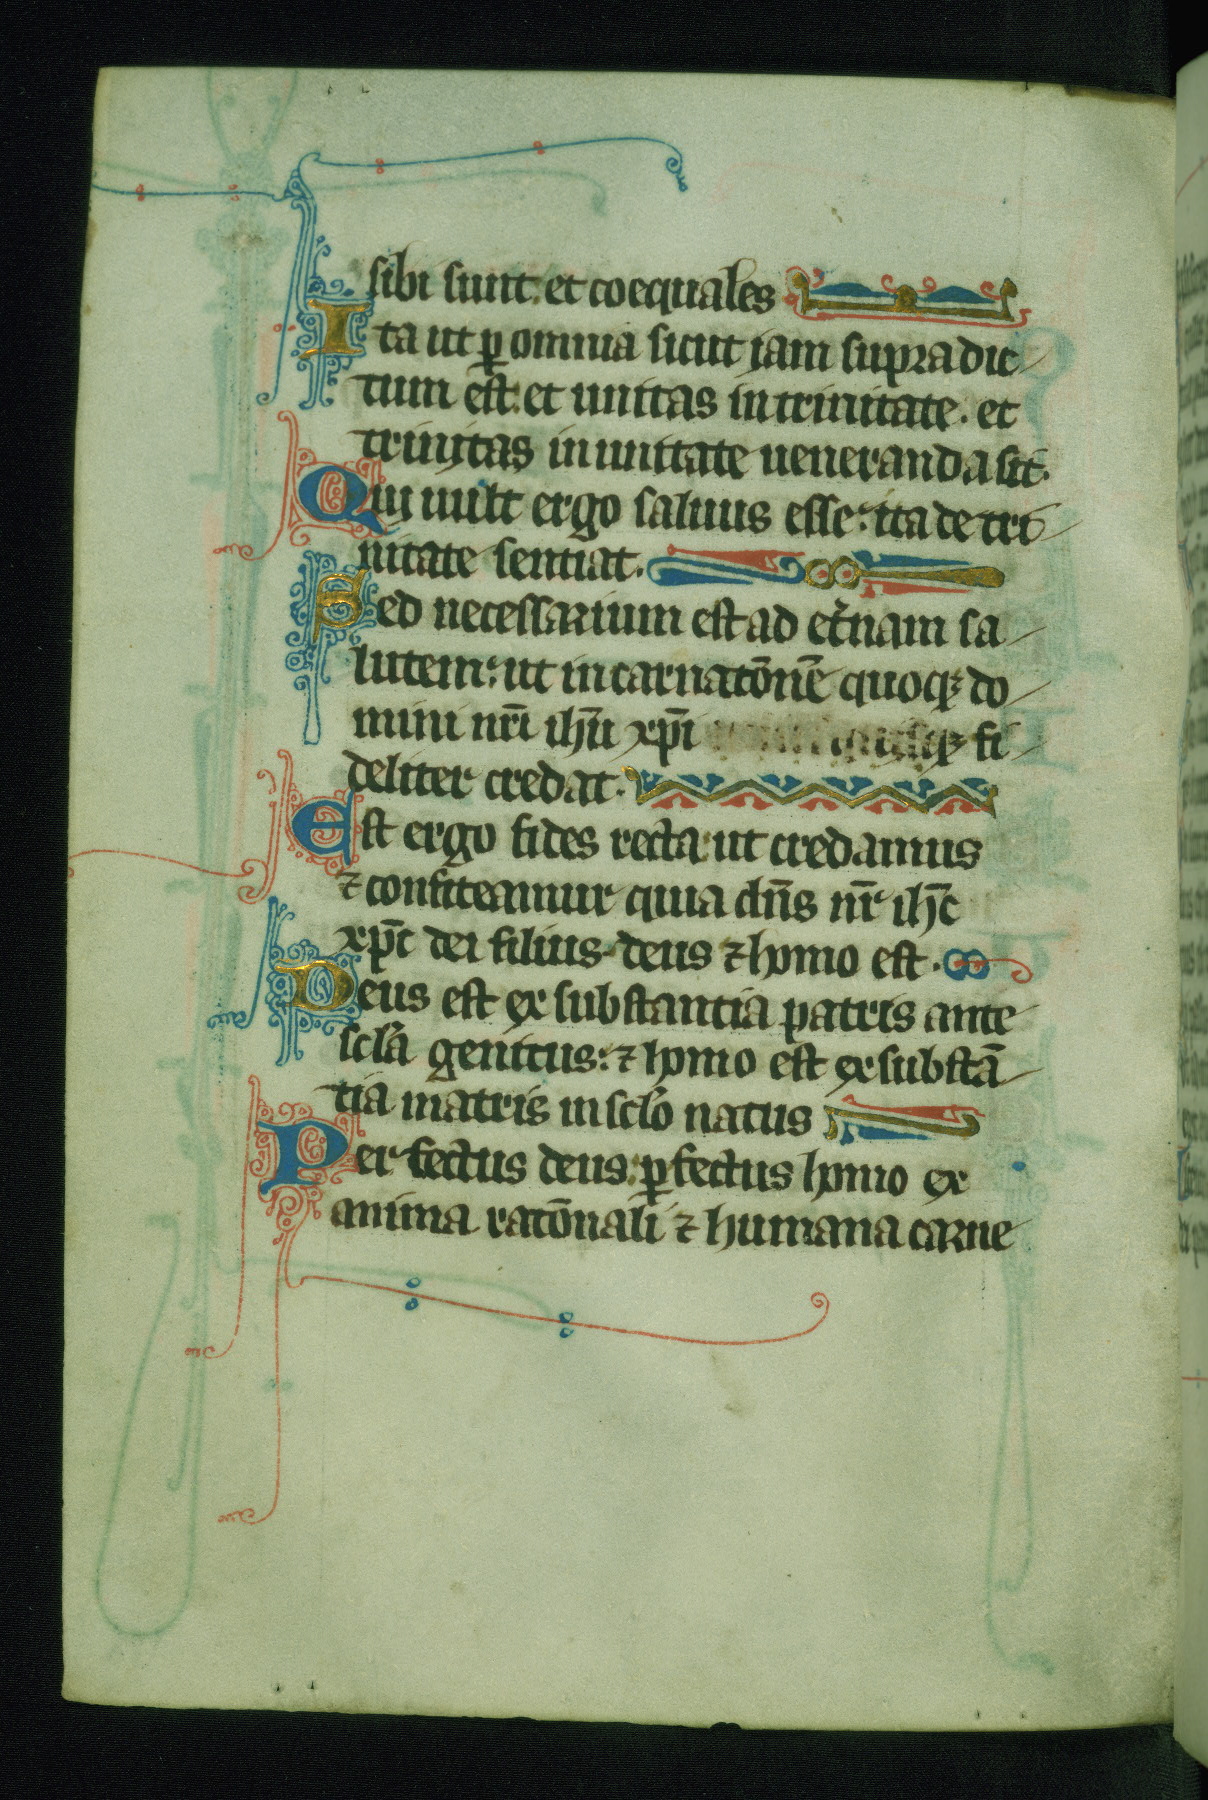 sibi sunt. et coequales
Ita ut p̲ omnia sicut iam supradic
tum est. et unitas in trinitate. et
trinitas in unitate ueneranda sit.
Qui uult ergo saluus esse: ita de tri
nitate sentiat.
Sed necessarium est ad et̾nam sa
lutem: ut incarnatōnē quoqꝫ do
mini nr̄i ih̄u xp̄i fi
deliter credat.
Est ergo fides recta ut credamus
⁊ confiteamur quia dn̄s nr̄ ih̄c
xp̄c dei filius deus ⁊ homo est.
Deus est ex substantia patris ante
scl̄a genitus: ⁊ homo est ex substā
tia matris in scl̄o natus
Perfectus deus. ꝑfectus homo ex
anima ratōnali ⁊ humana carne